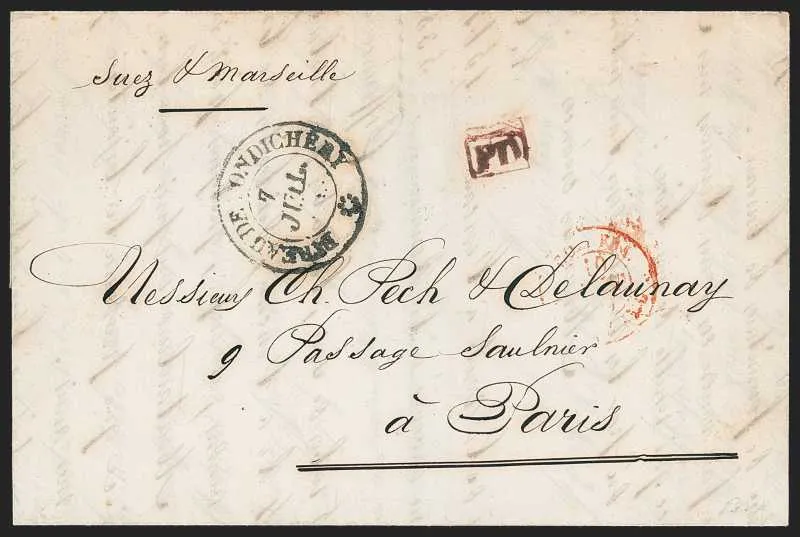 Suez & Marseille
BUREAU DE PONDICHERY
7
JUIL
PD
Messieurs Ch. Pech & Delaunay
9 Passage Saulnier
à Paris